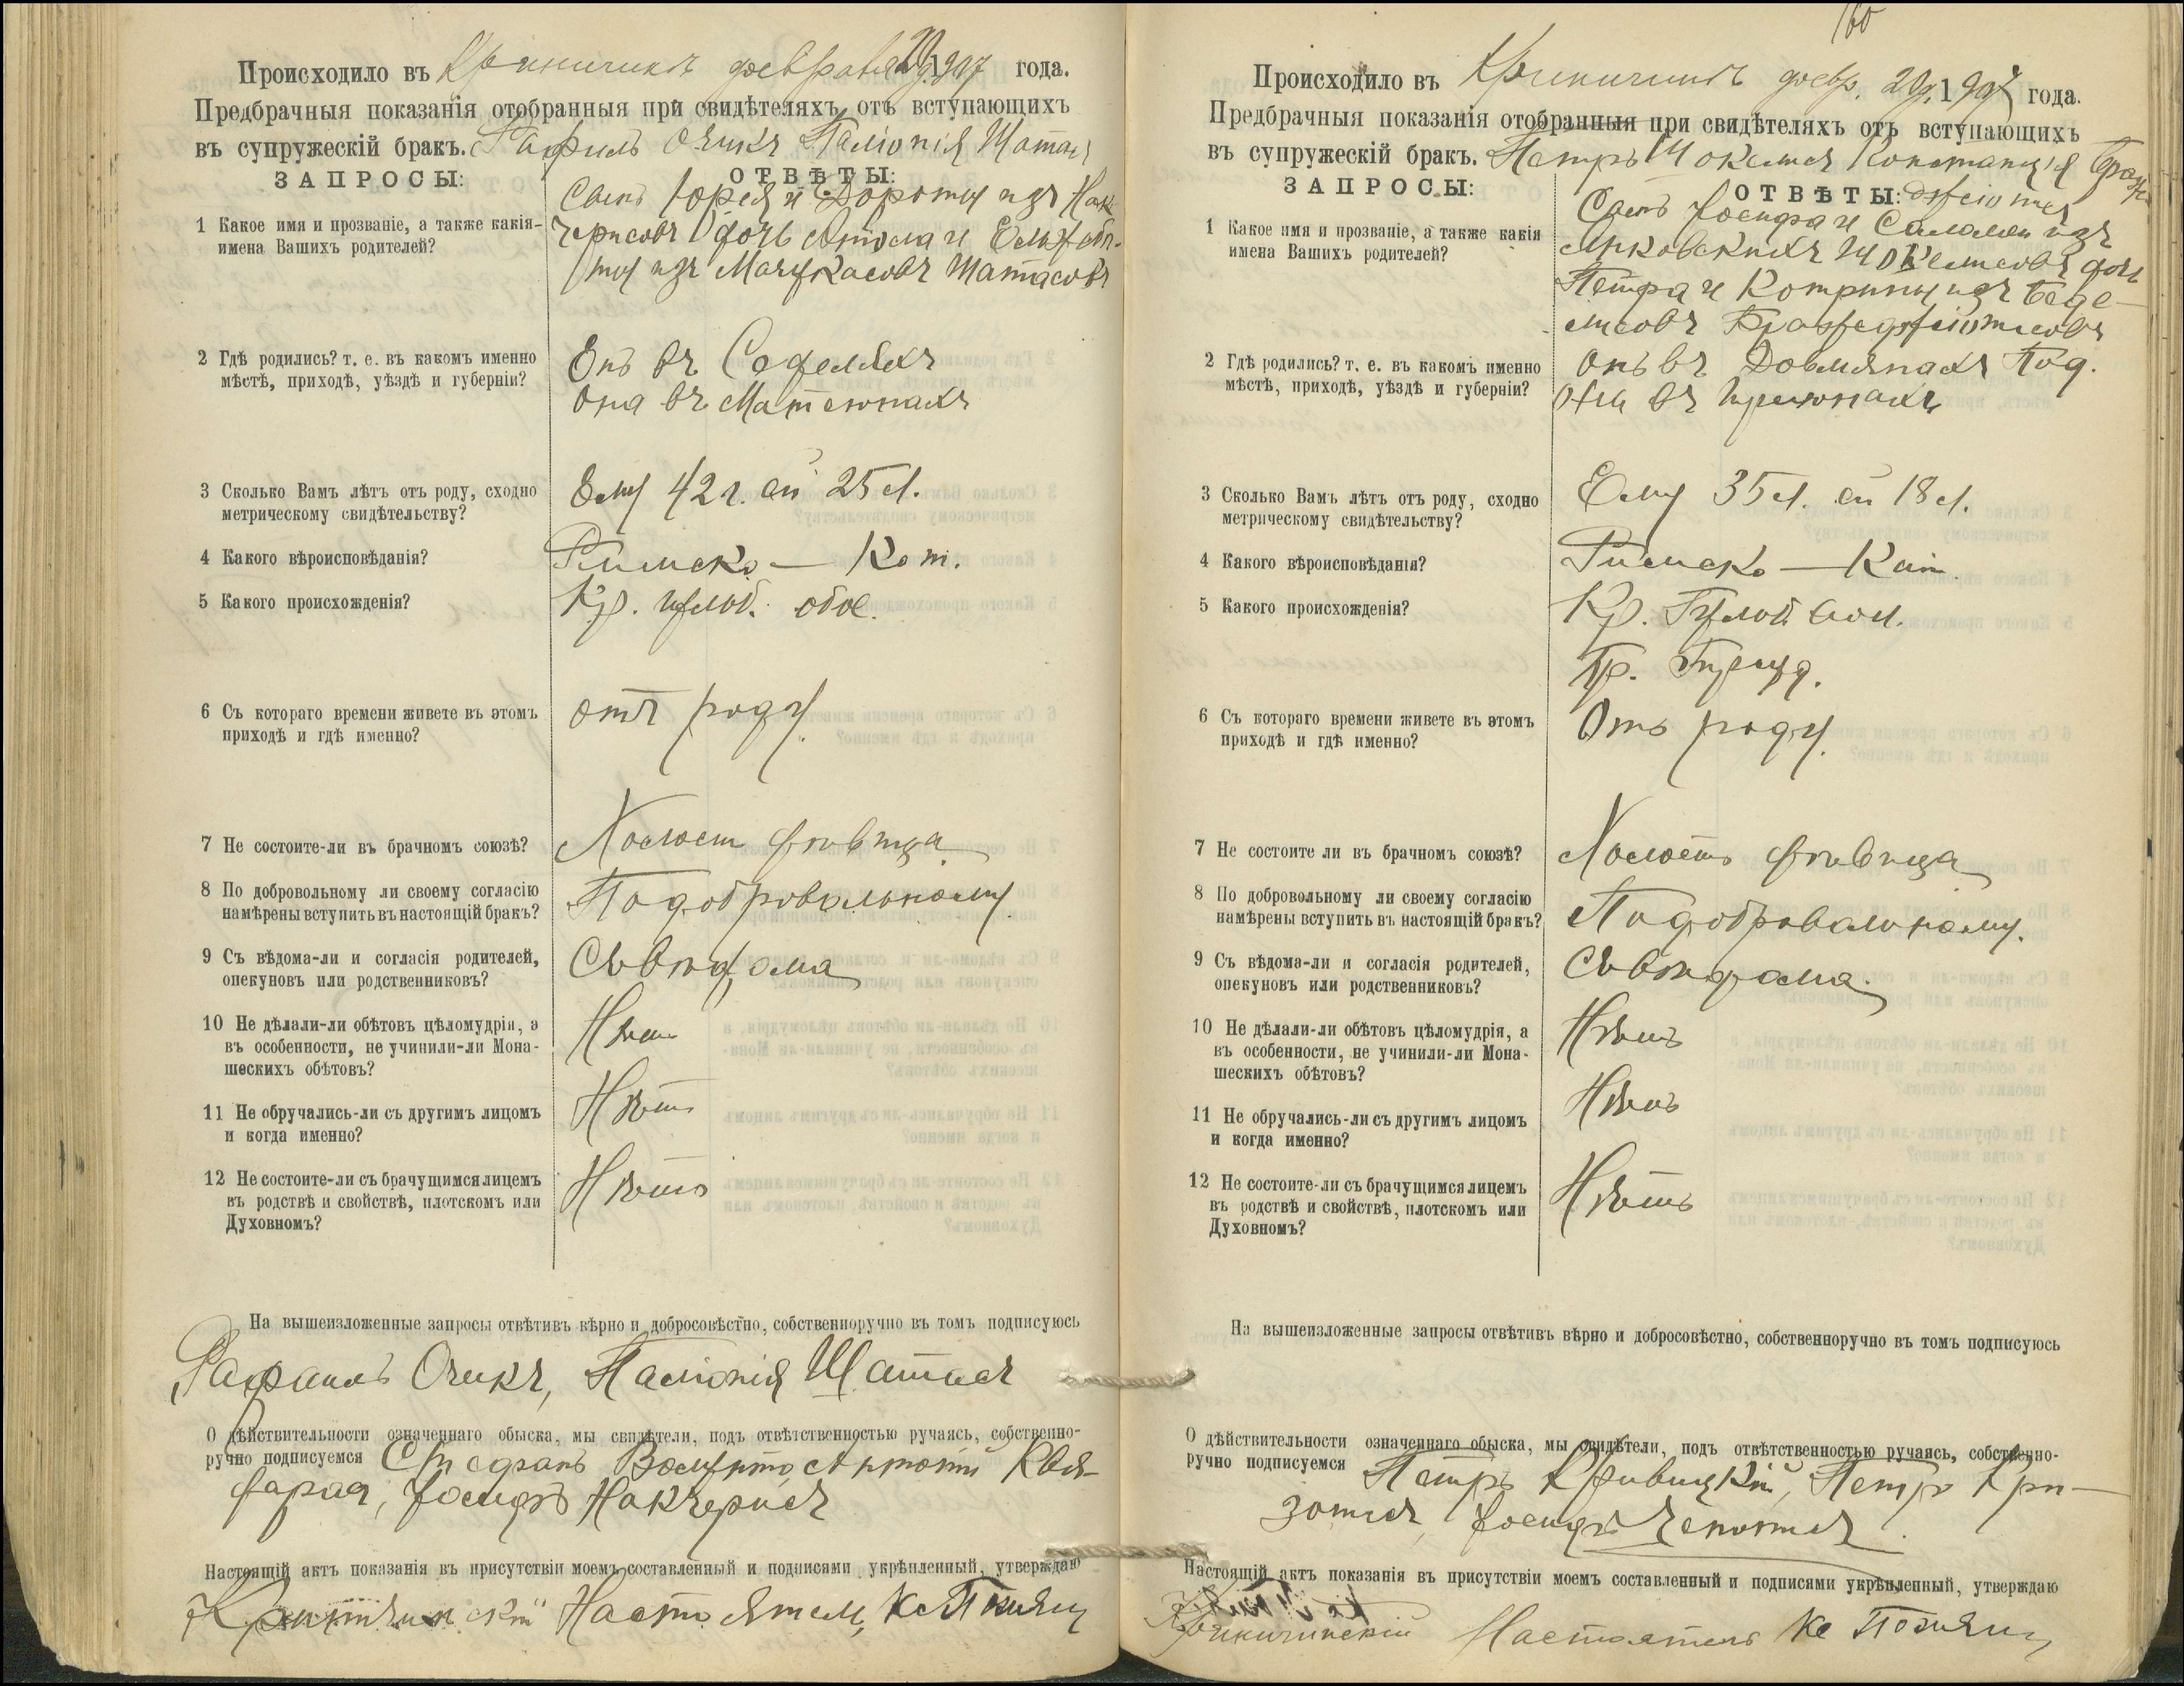 Происходило въ Криничинѣ февраля 20 д. 1907 года.
Предбрачныя показанія отобранныя при свидѣтеляхъ отъ вступающихъ
въ супружескій бракъ. Рафаилъ Очикъ Паліонія Шатасъ
ЗАПРОСЫ:
ОТВѢТЫ:
1 Какое имя и прозваніе, а также какія-
имена Вашихъ родителей?
Сынъ Юрея и Дороты изъ Нак-
черисовъ дочь Антона и Ельжбѣ-
ты изъ Мацукасовъ Шатасовъ
2 Гдѣ родились? т. е. въ какомъ именно
мѣстѣ, приходѣ, уѣздѣ и губерніи?
Онъ въ
Она въ
3 Сколько Вамъ лѣтъ отъ роду, сходно
метрическому свидѣтельству?
Ему 42 г. ей 25 л.
4 Какого вѣроисповѣданія?
Римско — Кат.
5 Какого происхожденія?
Кр. обое.
6 Съ котораго времени живете въ этомъ
приходѣ и гдѣ именно?
отъ роду.
7 Не состоите-ли въ брачномъ союзѣ?
Холостъ дѣвица
8 По добровольному ли своему согласію
намѣрены вступить въ настоящій бракъ?
По добровольному
9 Съ вѣдома-ли и согласія родителей,
опекуновъ или родственниковъ?
Съ вѣдома
10 Не дѣлали-ли обѣтовъ цѣломудрія, а
въ особенности, не учинили-ли Мона-
шескихъ обѣтовъ?
Нѣтъ
11 Не обручались-ли съ другимъ лицомъ
и когда именно?
Нѣтъ
12 Не состоите-ли съ брачущимся лицемъ
въ родствѣ и свойствѣ, плотскомъ или
Духовномъ?
Нѣтъ
На вышеизложенные запросы отвѣтивъ вѣрно и добросовѣстно, собственноручно въ томъ подписуюсь
Рафаилъ Очикъ, Паліонія Шатасъ
О дѣйствительности означеннаго обыска, мы свидѣтели, подъ отвѣтственностью ручаясь, собственно-
ручно подписуемся Стефанъ Антоній Ква-
дарас, Іосифъ Накчерисъ
Настоящій актъ показанія въ присутствіи моемъ составленный и подписями укрѣпленный, утверждаю
Настоятель, Кс
160
Происходило въ Криничинѣ февр. 20 д. 1907 года.
Предбрачныя показанія отобранныя при свидѣтеляхъ отъ вступающихъ
въ супружескій бракъ. Петръ Шокелисъ Констанція Браж-
ЗАПРОСЫ:
ОТВѢТЫ: дзіюте
1 Какое имя и прозваніе, а также какія
имена Вашихъ родителей?
Сынъ Іосифа и Саломеи изъ
Шокелисовъ дочь
Петра и Катрины изъ Беде-
лисовъ Бражедзіютисовъ
2 Гдѣ родились? т. е. въ какомъ именно
мѣстѣ, приходѣ, уѣздѣ и губерніи?
Онъ въ Довмянахъ Под.
Она въ
3 Сколько Вамъ лѣтъ отъ роду, сходно
метрическому свидѣтельству?
Ему 35 л. ей 18 л.
4 Какого вѣроисповѣданія?
Римско — Кат.
5 Какого происхожденія?
Кр. вол.
6 Съ котораго времени живете въ этомъ
приходѣ и гдѣ именно?
Отъ роду.
7 Не состоите ли въ брачномъ союзѣ?
Холостъ дѣвица
8 По добровольному ли своему согласію
намѣрены вступить въ настоящій бракъ?
По добровольному.
9 Съ вѣдома-ли и согласія родителей,
опекуновъ или родственниковъ?
Съ вѣдома.
10 Не дѣлали-ли обѣтовъ цѣломудрія, а
въ особенности, не учинили-ли Мона-
шескихъ обѣтовъ?
Нѣтъ
11 Не обручались-ли съ другимъ лицомъ
и когда именно?
Нѣтъ
12 Не состоите-ли съ брачущимся лицемъ
въ родствѣ и свойствѣ, плотскомъ или
Духовномъ?
Нѣтъ
На вышеизложенные запросы отвѣтивъ вѣрно и добросовѣстно, собственноручно въ томъ подписуюсь
О дѣйствительности означеннаго обыска, мы свидѣтели, подъ отвѣтственностью ручаясь, собственно-
ручно подписуемся Петръ Кривицкій, Петръ Кри-
зотисъ, Іосифъ Чепотисъ
Настоящій актъ показанія въ присутствіи моемъ составленный и подписями укрѣпленный, утверждаю
Криничинскій Настоятель Кс